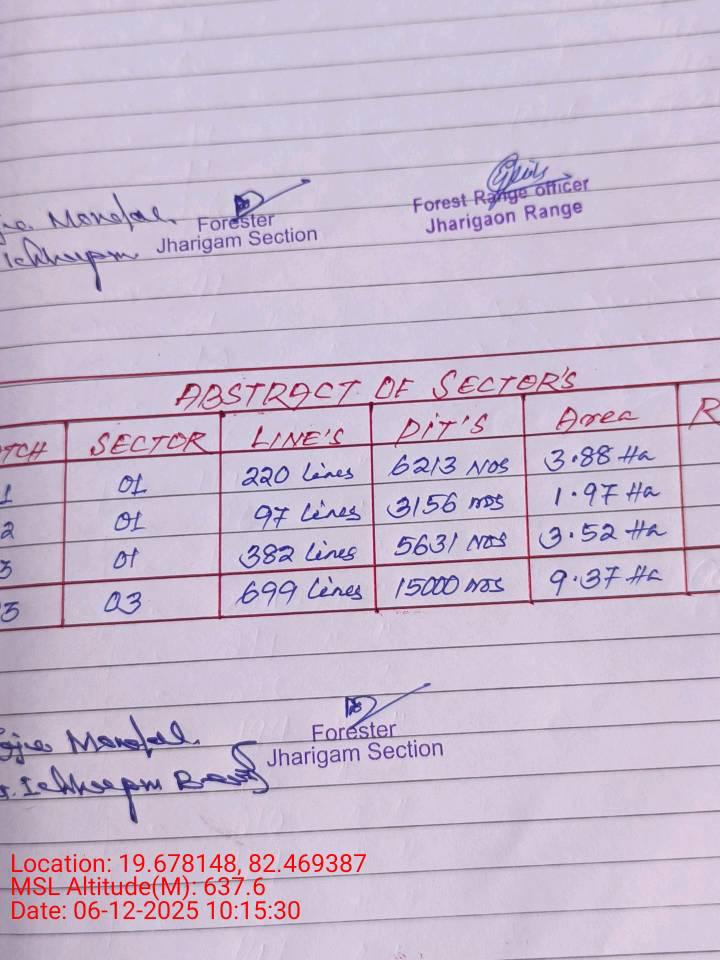 Forest Range officer
Jharigaon Range
Forester
Jharigam Section
ABSTRACT OF SECTOR'S
TCH SECTOR LINE'S PIT'S Area R
1 01 220 Lines 6213 Nos 3.88 Ha
2 01 97 Lines 3156 nos 1.97 Ha
3 01 382 Lines 5631 Nos 3.52 Ha
3 03 699 Lines 15000 nos 9.37 Ha
Forester
Jharigam Section
Location: 19.678148, 82.469387
MSL Altitude(M): 637.6
Date: 06-12-2025 10:15:30